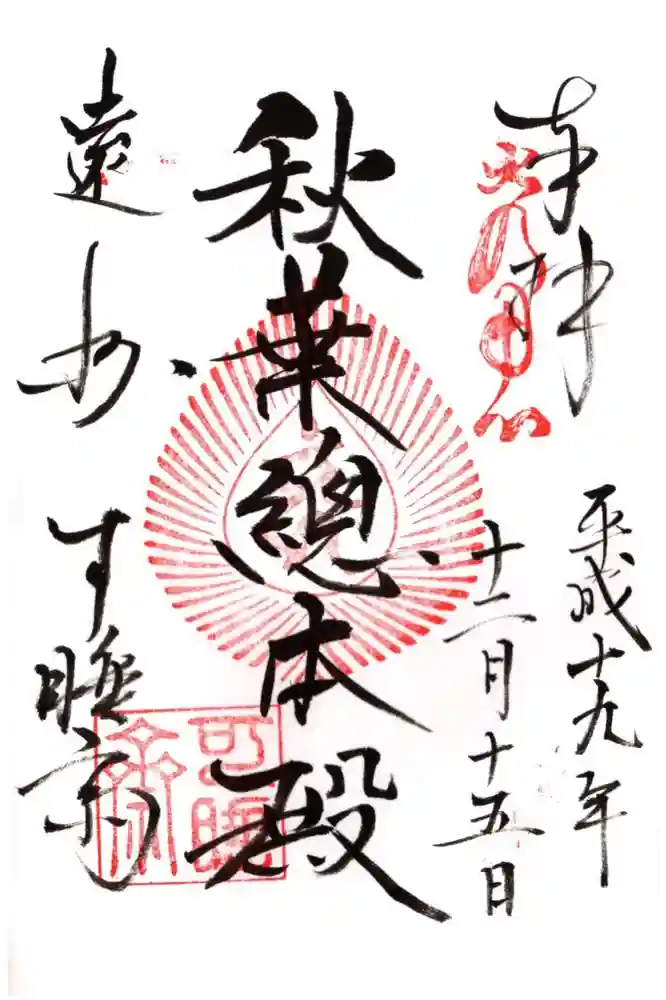 奉拝
平成十九年
十二月十五日
秋葉總本殿
遠州
可睡斎
可睡